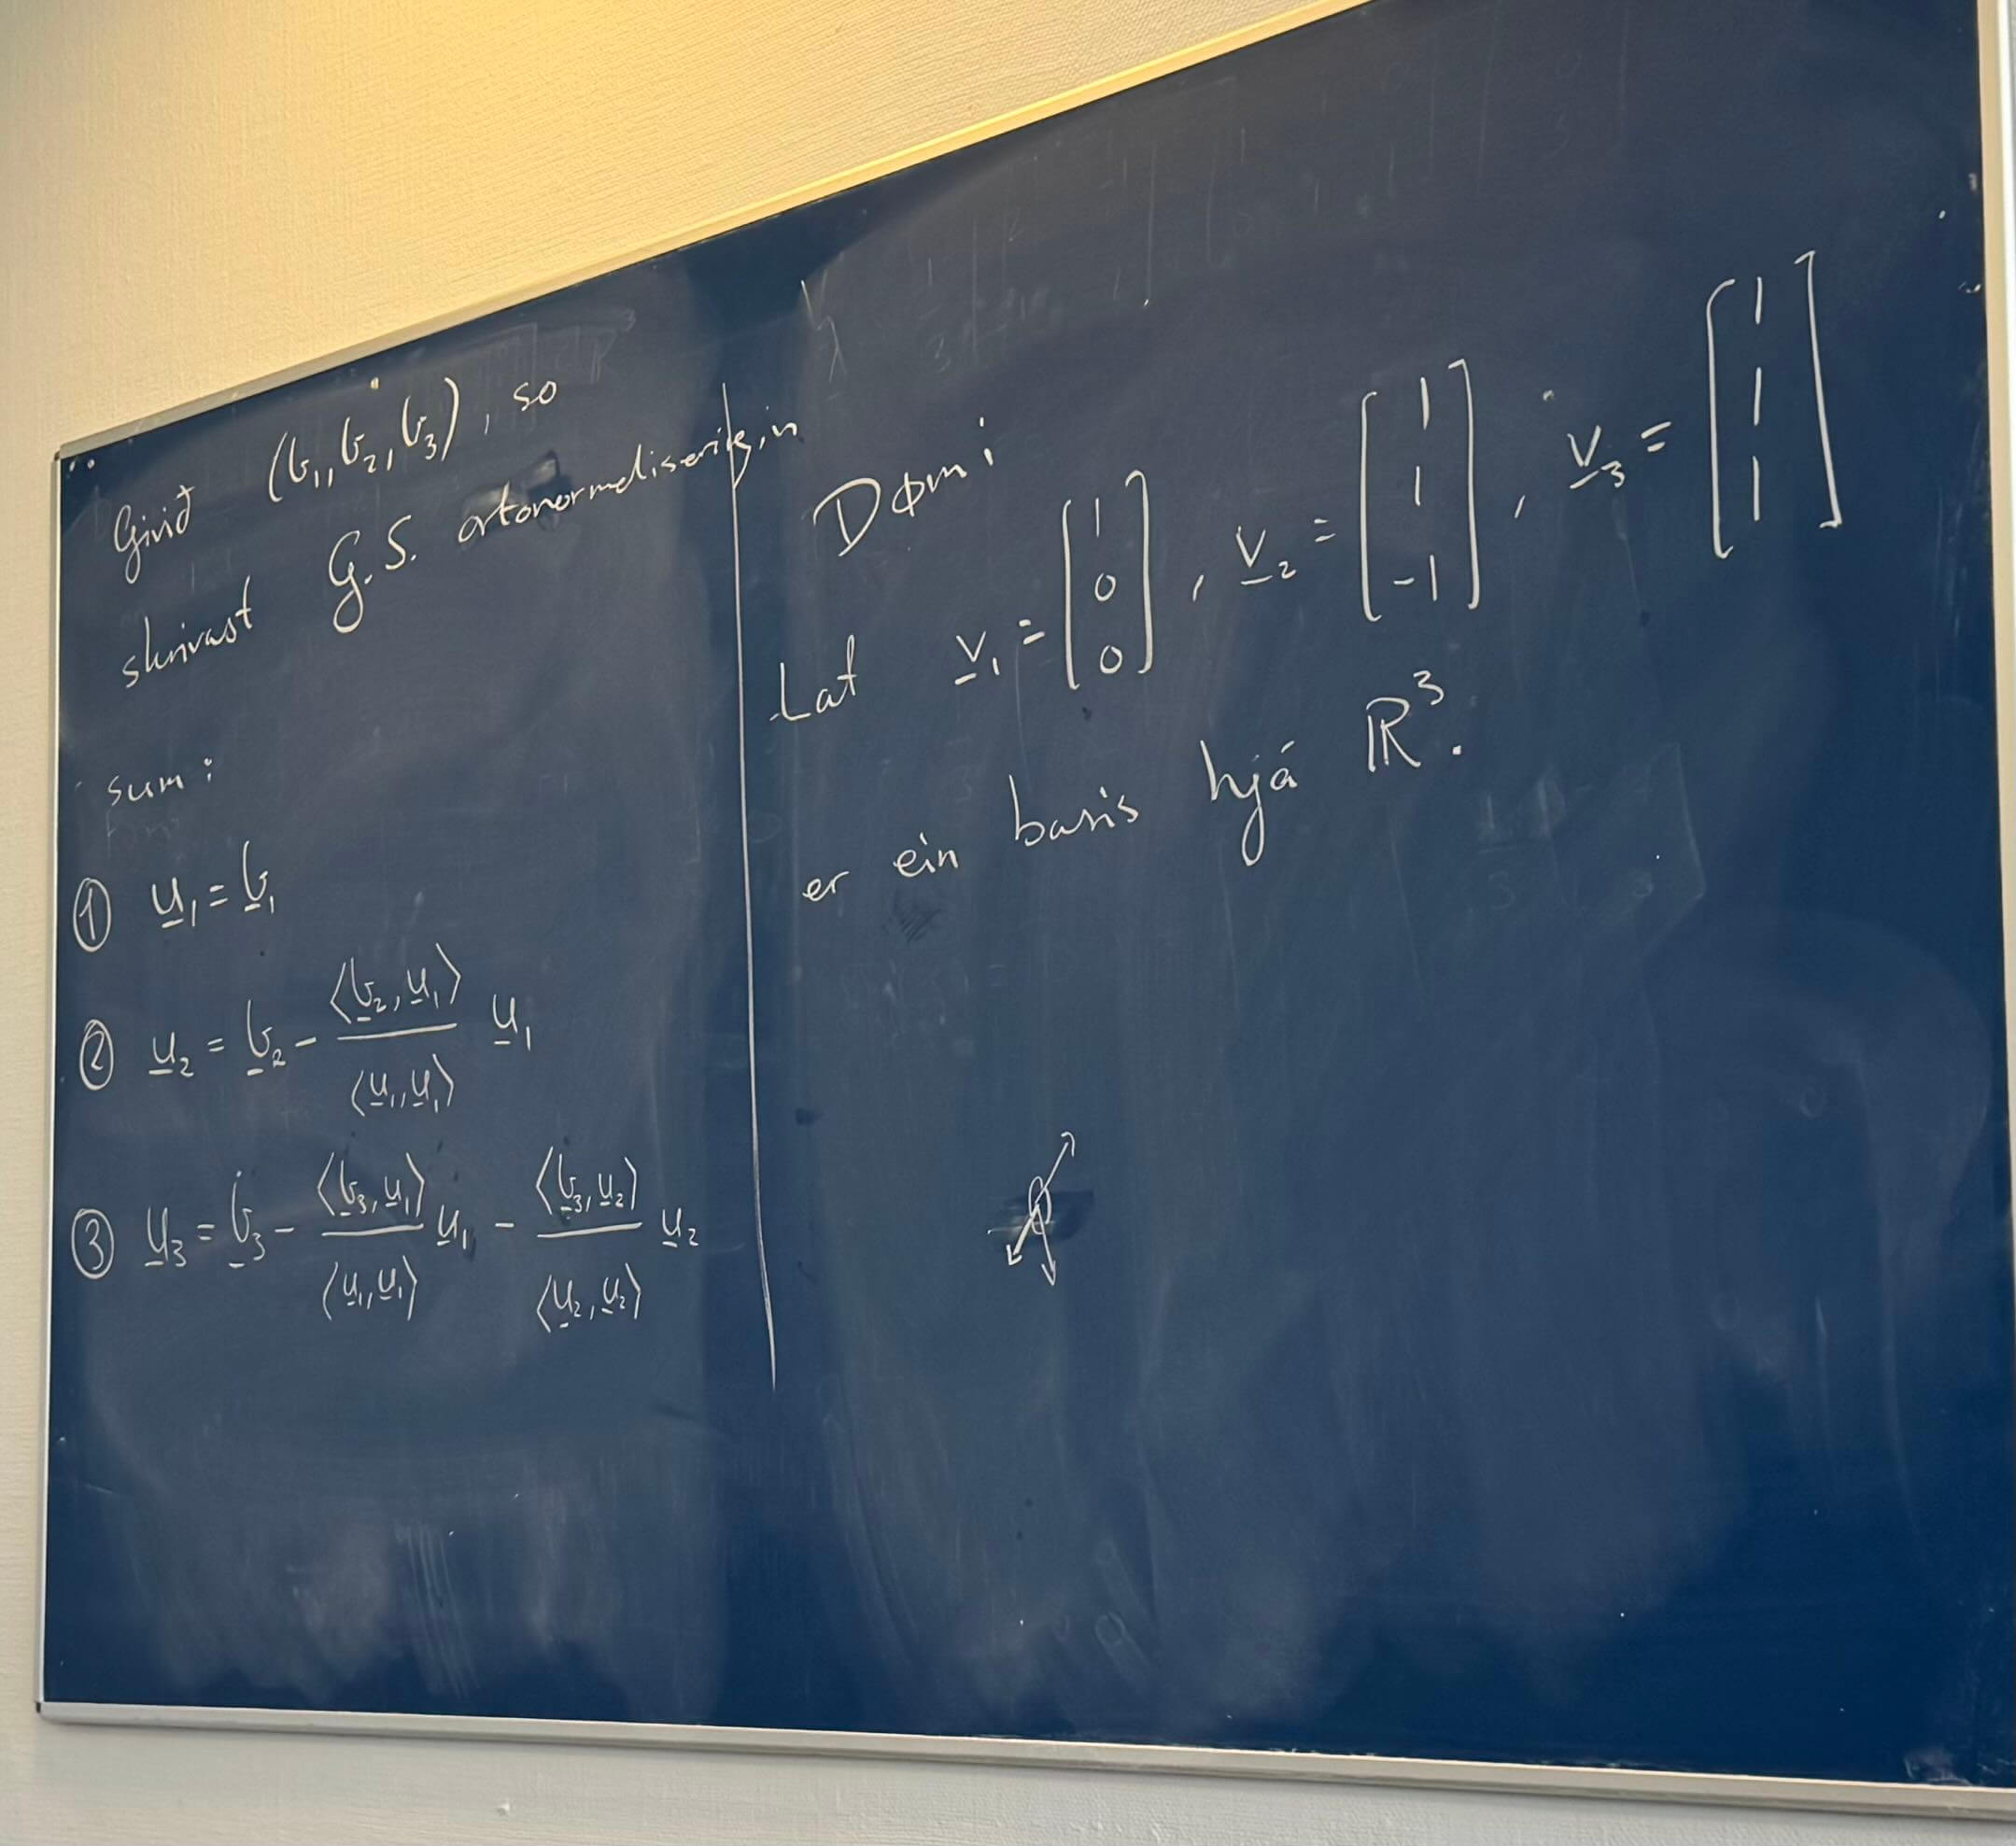 Givið (b₁, b₂, b₃), so
skrivast G.S. ortonormaliseringin
sum:
① u₁ = b₁
② u₂ = b₂ - ⟨b₂, u₁⟩ / ⟨u₁, u₁⟩ u₁
③ u₃ = b₃ - ⟨b₃, u₁⟩ / ⟨u₁, u₁⟩ u₁ - ⟨b₃, u₂⟩ / ⟨u₂, u₂⟩ u₂
Dømi
Lat v₁ = [1 0 0], v₂ = [1 1 -1], v₃ = [1 1 1]
er ein basis hjá ℝ³.